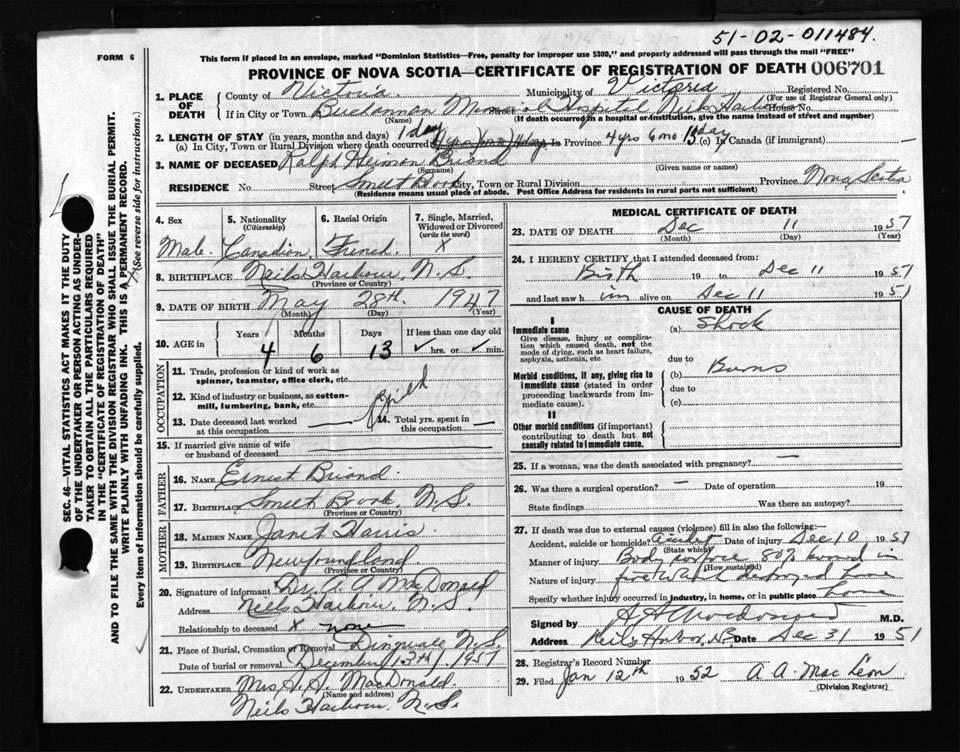 51-02-011484.
FORM 6
This form if placed in an envelope, marked "Dominion Statistics—Free, penalty for improper use $300," and properly addressed will pass through the mail "FREE"
PROVINCE OF NOVA SCOTIA—CERTIFICATE OF REGISTRATION OF DEATH 006701
1. PLACE OF DEATH
County of Victoria Municipality of Victoria Registered No.
(For use of Registrar General only)
If in City or Town Buchanan Memorial Hospital Neils Harbour Street House No.
(Name) (If death occurred in a hospital or institution, give the name instead of street and number)
2. LENGTH OF STAY (in years, months and days)
(a) In City, Town or Rural Division where death occurred 1 day (b) In Province 4 yrs 6 mo 13 day (c) In Canada (if immigrant) —
3. NAME OF DECEASED Ralph Heiman Briand
(Surname) (Given name or names)
RESIDENCE No. Street Smelt Brook City, Town or Rural Division Province Nova Scotia
(Residence means usual place of abode. Post Office Address for residents in rural parts not sufficient)
4. Sex 5. Nationality 6. Racial Origin 7. Single, Married, Widowed or Divorced
(Citizenship) (write the word)
Male Canadian French X
8. BIRTHPLACE Neils Harbour, N.S.
(Province or Country)
9. DATE OF BIRTH May 28th. 1947
(Month) (Day) (Year)
10. AGE in Years Months Days If less than one day old
4 6 13 ✓ hrs. or ✓ min.
OCCUPATION
11. Trade, profession or kind of work as spinner, teamster, office clerk, etc.
12. Kind of industry or business, as cotton-mill, lumbering, bank, etc.
child
13. Date deceased last worked at this occupation — 14. Total yrs. spent in this occupation —
15. If married give name of wife or husband of deceased —
FATHER
16. NAME Ernest Briand.
17. BIRTHPLACE Smelt Brook, N.S.
(Province or Country)
MOTHER
18. MAIDEN NAME Janet Harris.
19. BIRTHPLACE Newfoundland
(Province or Country)
20. Signature of informant Dr. A. A. MacDonald
Address Neils Harbour, N.S.
Relationship to deceased X none
21. Place of Burial, Cremation or Removal Dingwall N.S.
Date of burial or removal December 13th, 1951
22. UNDERTAKER Mrs. A. A. MacDonald
(Name and address)
Neils Harbour, N.S.
MEDICAL CERTIFICATE OF DEATH
23. DATE OF DEATH Dec 11 1951
(Month) (Day) (Year)
24. I HEREBY CERTIFY that I attended deceased from:
Birth 19 to Dec 11 1951
and last saw h im alive on Dec 11 1951
CAUSE OF DEATH
I
Immediate cause (a) Shock
Give disease, injury or complication which caused death, not the mode of dying, such as heart failure, asphyxia, asthenia, etc.
due to
Morbid conditions, if any, giving rise to immediate cause (stated in order proceeding backwards from immediate cause).
(b) Burns
due to
(c)
II
Other morbid conditions (if important) contributing to death but not causally related to immediate cause.
25. If a woman, was the death associated with pregnancy? —
26. Was there a surgical operation? — Date of operation 19
State findings Was there an autopsy?
27. If death was due to external causes (violence) fill in also the following:—
Accident, suicide or homicide? Date of injury Dec 10 1951
(State which)
Manner of injury Body surface 80% burned in
(How sustained)
Nature of injury fire which destroyed home
Specify whether injury occurred in industry, in home, or in public place home
Signed by M.D.
Address Neils Harbor, N.S. Date Dec 31 1951
28. Registrar's Record Number
29. Filed Jan 12th 1952 A A. MacLeon
(Division Registrar)
SEC. 46—VITAL STATISTICS ACT MAKES IT THE DUTY
OF THE UNDERTAKER OR PERSON ACTING AS UNDER-
TAKER TO OBTAIN ALL THE PARTICULARS REQUIRED
IN THE "CERTIFICATE OF REGISTRATION OF DEATH"
AND TO FILE THE SAME WITH THE DIVISION REGISTRAR WHO SHALL ISSUE THE BURIAL PERMIT.
WRITE PLAINLY WITH UNFADING INK. THIS IS A PERMANENT RECORD.
Every item of information should be carefully supplied. (See reverse side for instructions.)